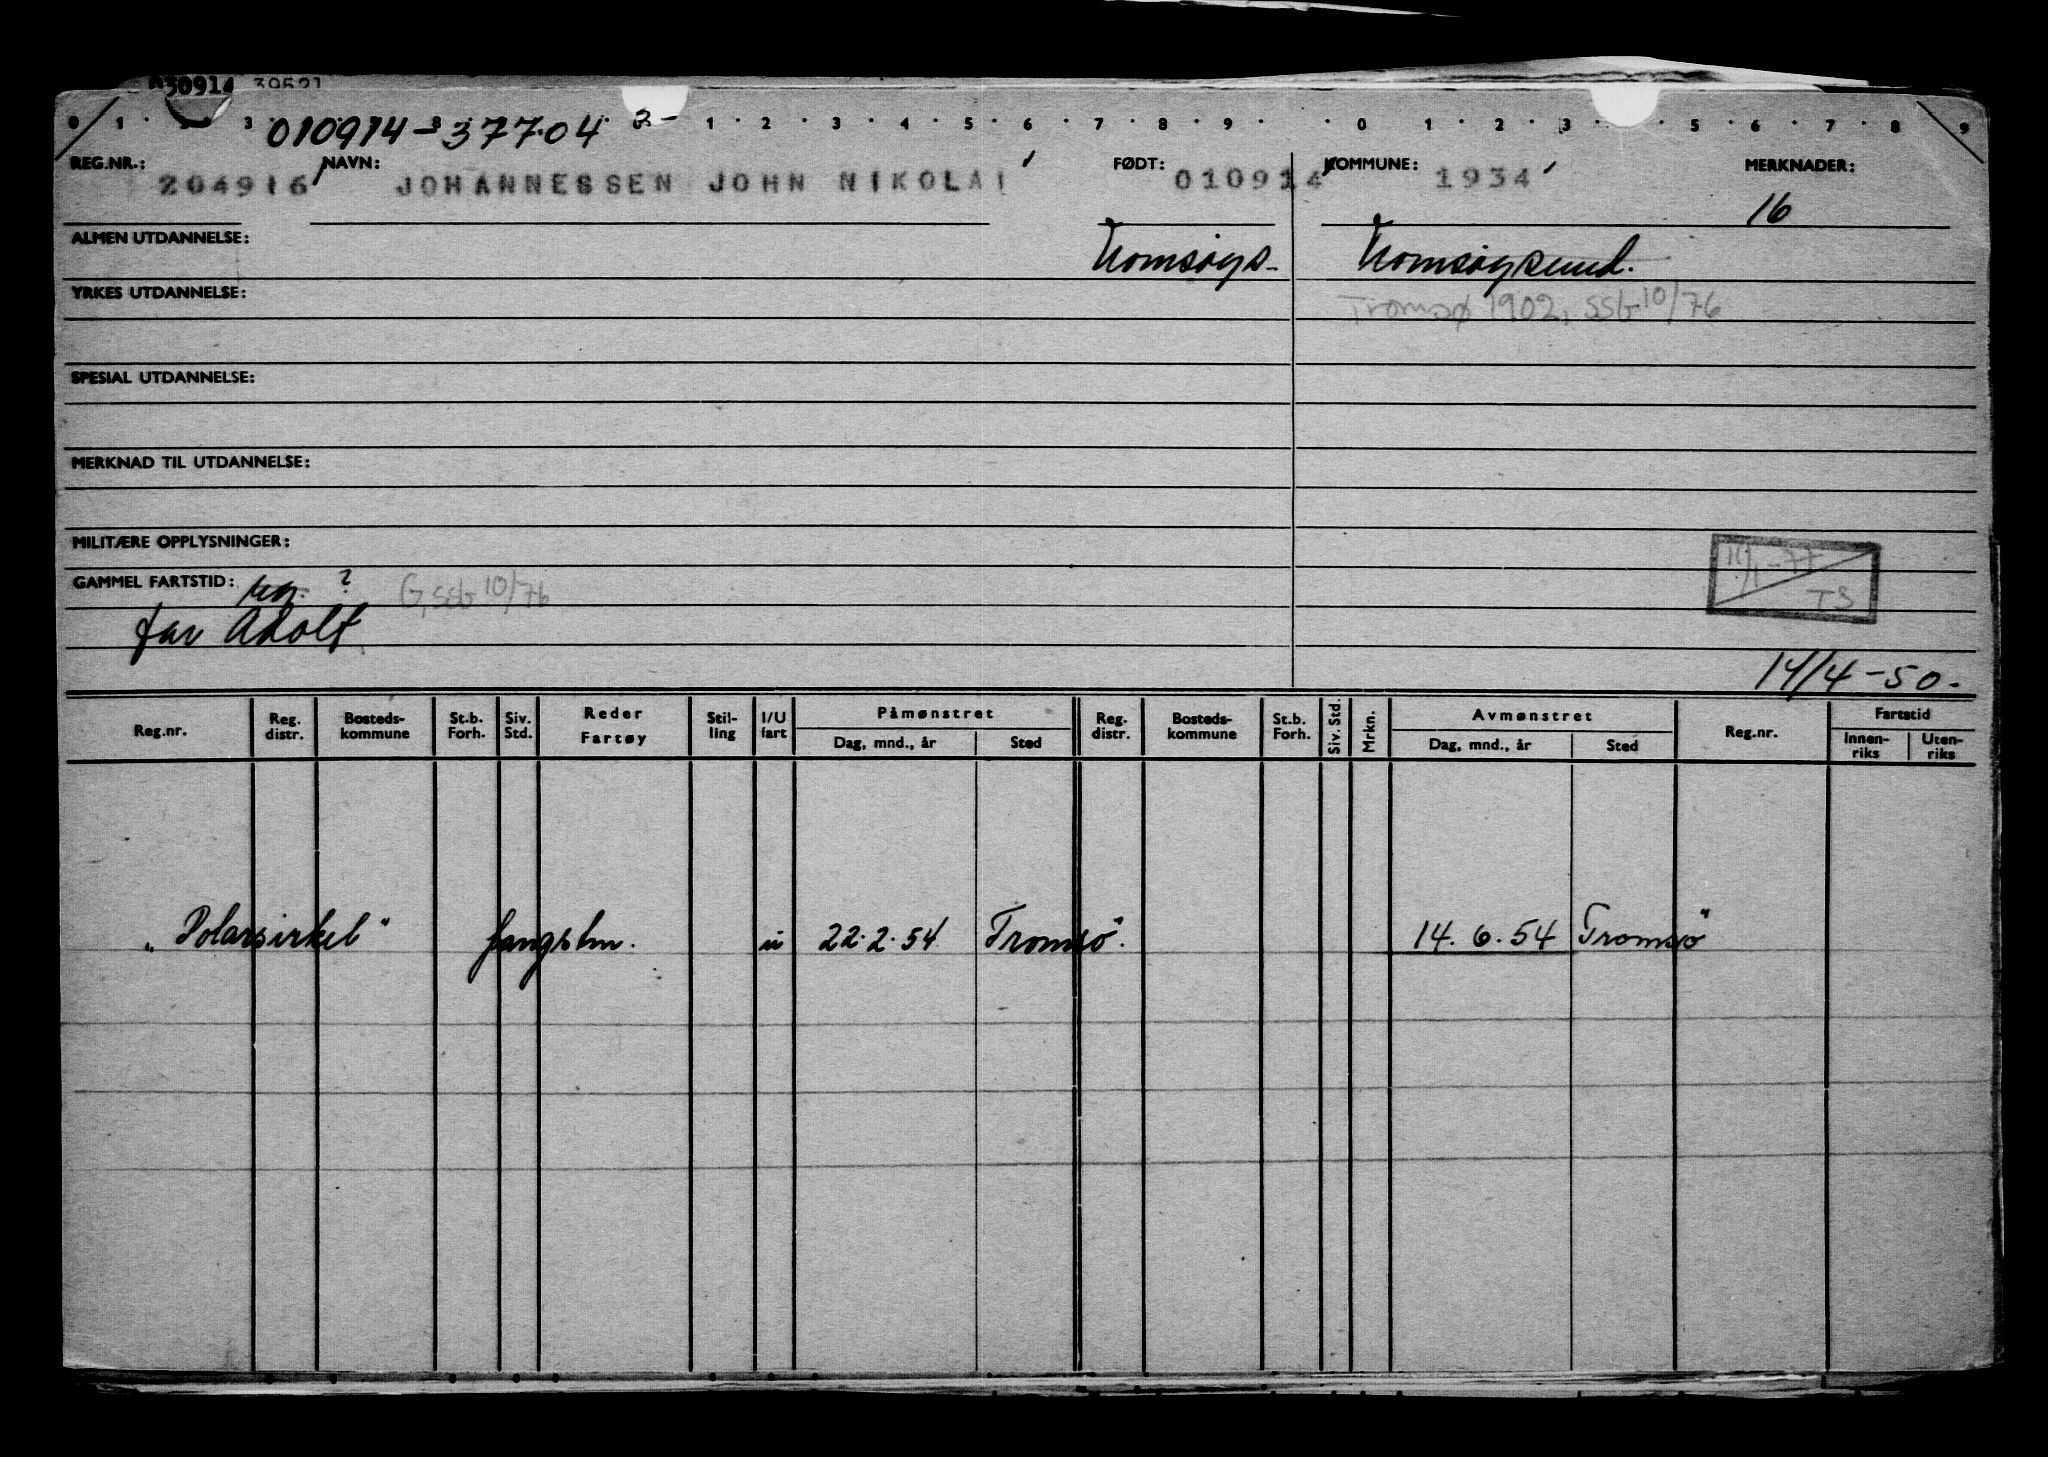 030914 39521
0 1 2 3 8 1 2 3 4 5 6 7 8 9 0 1 2 3 5 6 7 8 9
010914-37704 2-
REG.NR.: NAVN: FØDT: KOMMUNE: MERKNADER:
204916 JOHANNESSEN JOHN NIKOLAI 010914 1934 16
ALMEN UTDANNELSE: Tromsøys. Tromsøysund.
YRKES UTDANNELSE: Tromsø 1902, SSG 10/76
SPESIAL UTDANNELSE:
MERKNAD TIL UTDANNELSE:
MILITÆRE OPPLYSNINGER: 11/1-77 TS
GAMMEL FARTSTID: reg. ? G, SSG 10/76
far Adolf
14/4-50.
Reg.nr. Reg. distr. Bosteds- kommune St.b. Forh. Siv. Std. Reder Fartøy Stil- ling I/U fart Påmønstret Dag, mnd., år Sted Reg. distr. Bosteds- kommune St.b. Forh. Siv. Std. Mrkn. Avmønstret Dag, mnd., år Sted Reg.nr. Fartstid Innen- riks Uten- riks
"Polarsirkel" fangstm. u 22.2.54 Tromsö. 14.6.54 Tromsö